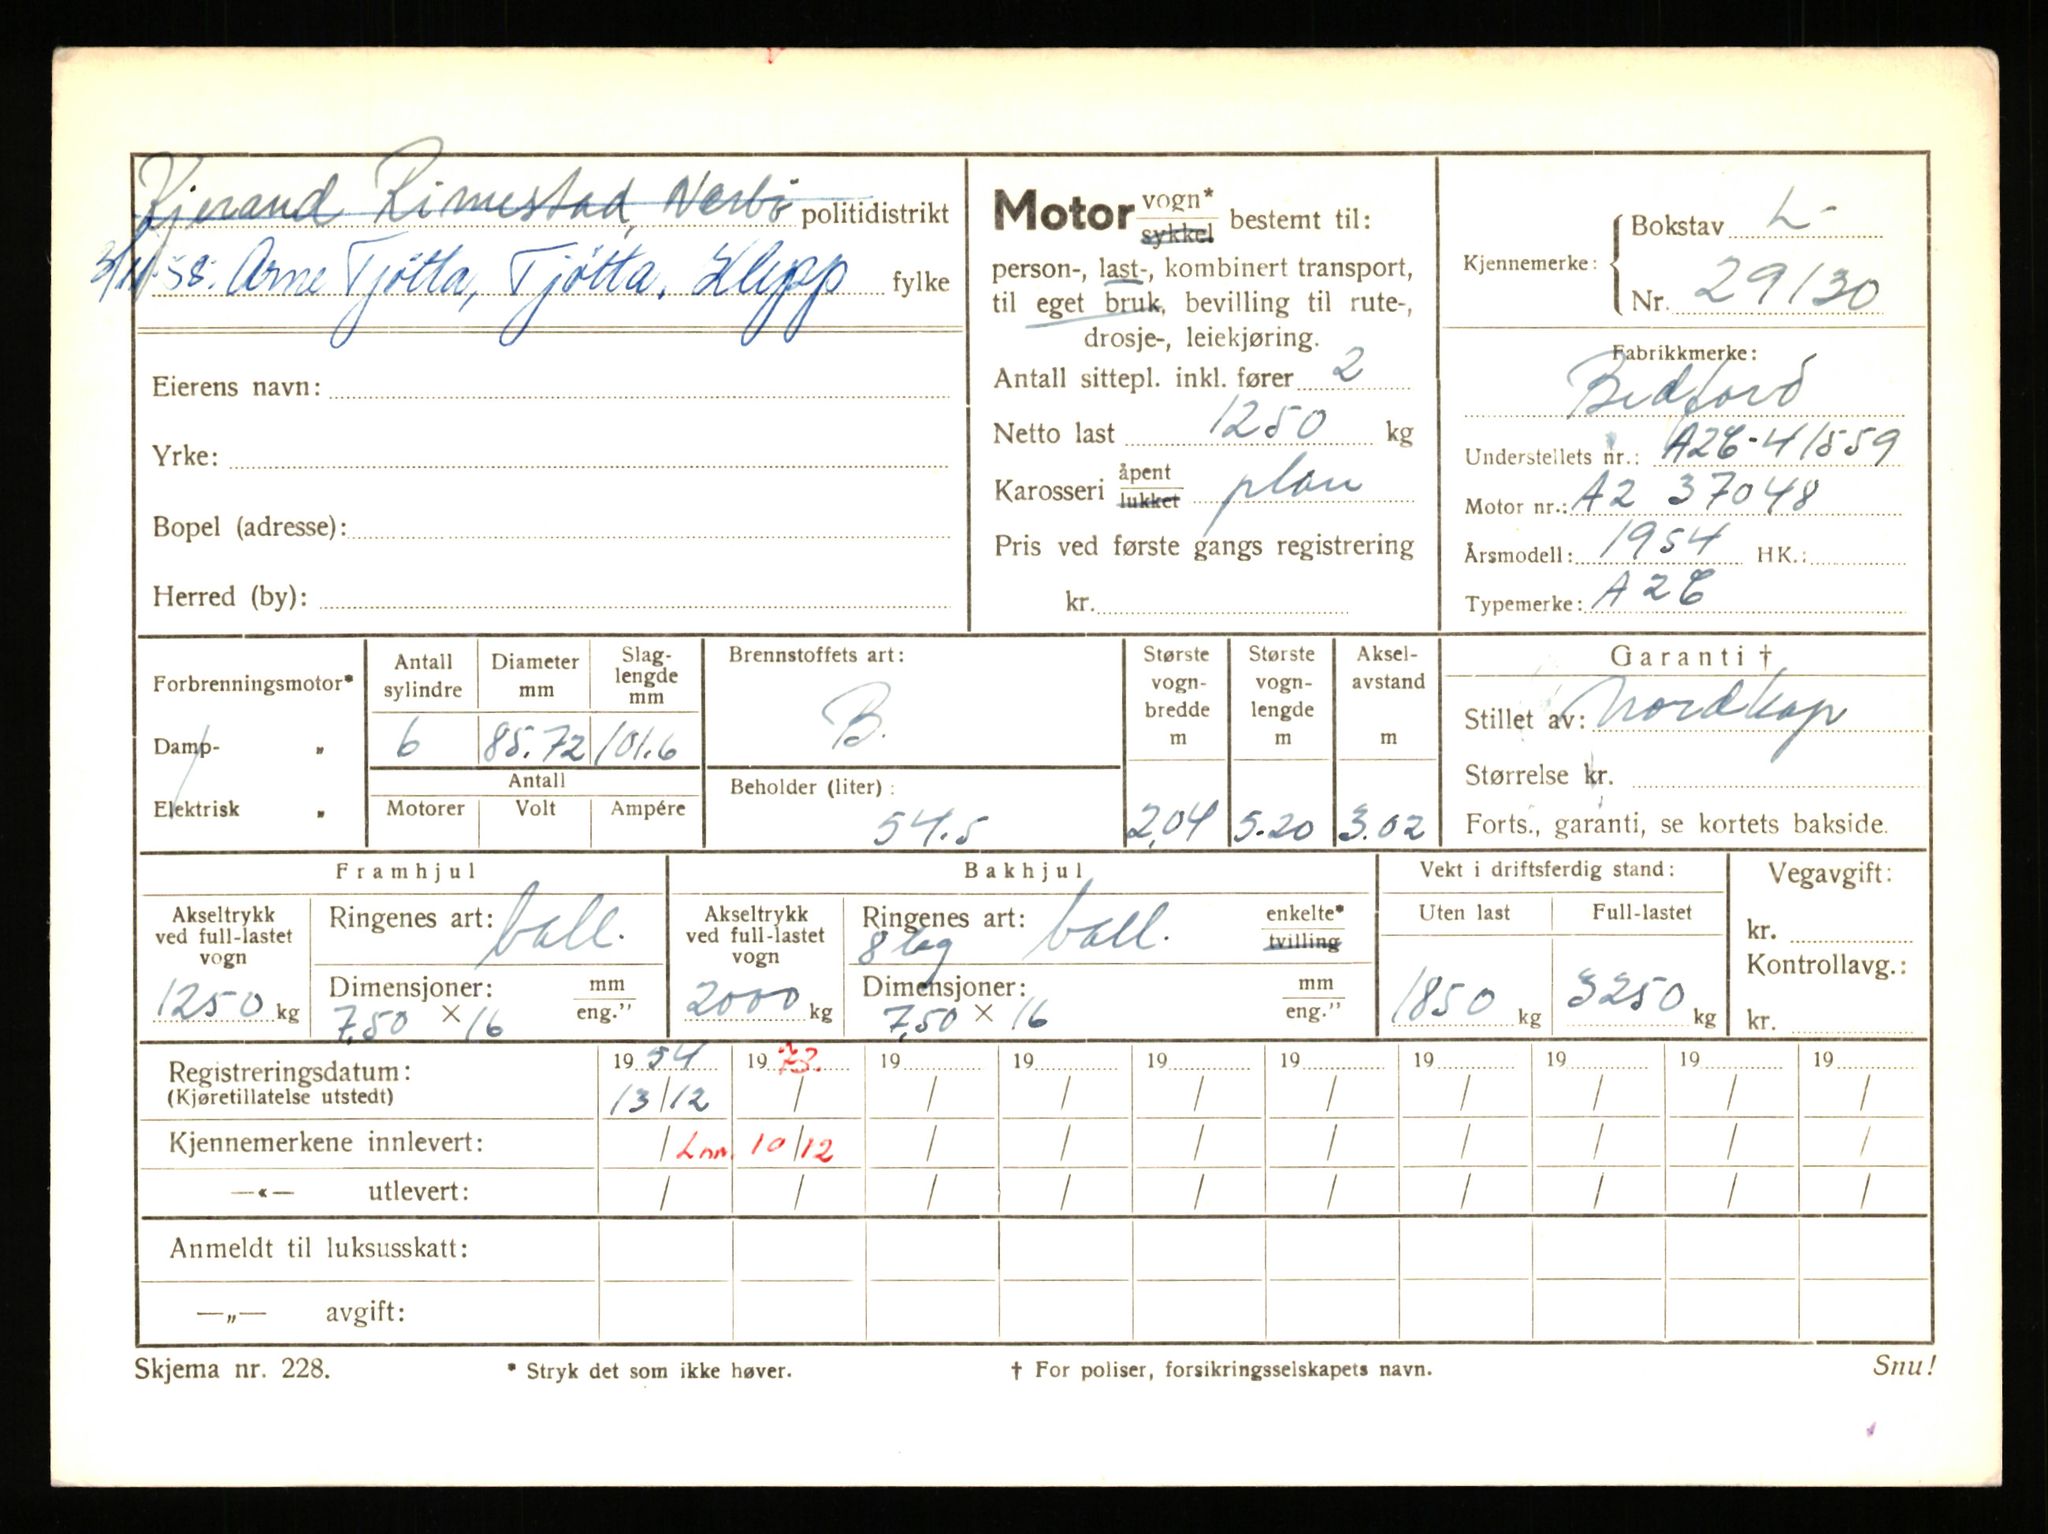 Kjerand Rimestad, Nærbø politidistrikt
3/11-58. Arne Tjøtta, Tjøtta, Klepp fylke
Eierens navn:
Yrke:
Bopel (adresse):
Herred (by):
Motor vogn* sykkel bestemt til:
person-, last-, kombinert transport,
til eget bruk, bevilling til rute-,
drosje-, leiekjøring.
Antall sittepl. inkl. fører 2
Netto last 1250 kg
Karosseri åpent lukket plan
Pris ved første gangs registrering
kr.
Kjennemerke: Bokstav L-
Nr. 29130
Fabrikkmerke:
Bedford
Understellets nr.: A2C-41559
Motor nr.: A2 37048
Årsmodell: 1954 HK.:
Typemerke: A2C
Forbrenningsmotor*
Damp- „
Elektrisk „
Antall sylindre 6
Diameter mm 85.72
Slaglengde mm 101.6
Antall
Motorer Volt Ampére
Brennstoffets art:
B.
Beholder (liter):
54.5
Største vogn-bredde m 2,04
Største vogn-lengde m 5.20
Aksel-avstand m 3.02
Garanti †
Stillet av: Nordkap
Størrelse kr.
Forts., garanti, se kortets bakside.
Framhjul
Akseltrykk ved full-lastet vogn 1250 kg
Ringenes art: ball.
Dimensjoner: 7,50 × 16 mm eng.”
Bakhjul
Akseltrykk ved full-lastet vogn 2000 kg
Ringenes art: 8 lag ball. enkelte* tvilling
Dimensjoner: 7,50 × 16 mm eng.”
Vekt i driftsferdig stand:
Uten last Full-lastet
1850 kg 3250 kg
Vegavgift:
kr.
Kontrollavg.:
kr.
Registreringsdatum: 19 54 19 73. 19 19 19 19 19 19 19 19
(Kjøretillatelse utstedt) 13/12 / / / / / / / / /
Kjennemerkene innlevert: / Lnn. 10/12 / / / / / / / /
—«— utlevert: / / / / / / / / / /
Anmeldt til luksusskatt:
—„— avgift:
Skjema nr. 228. * Stryk det som ikke høver. † For poliser, forsikringsselskapets navn. Snu!